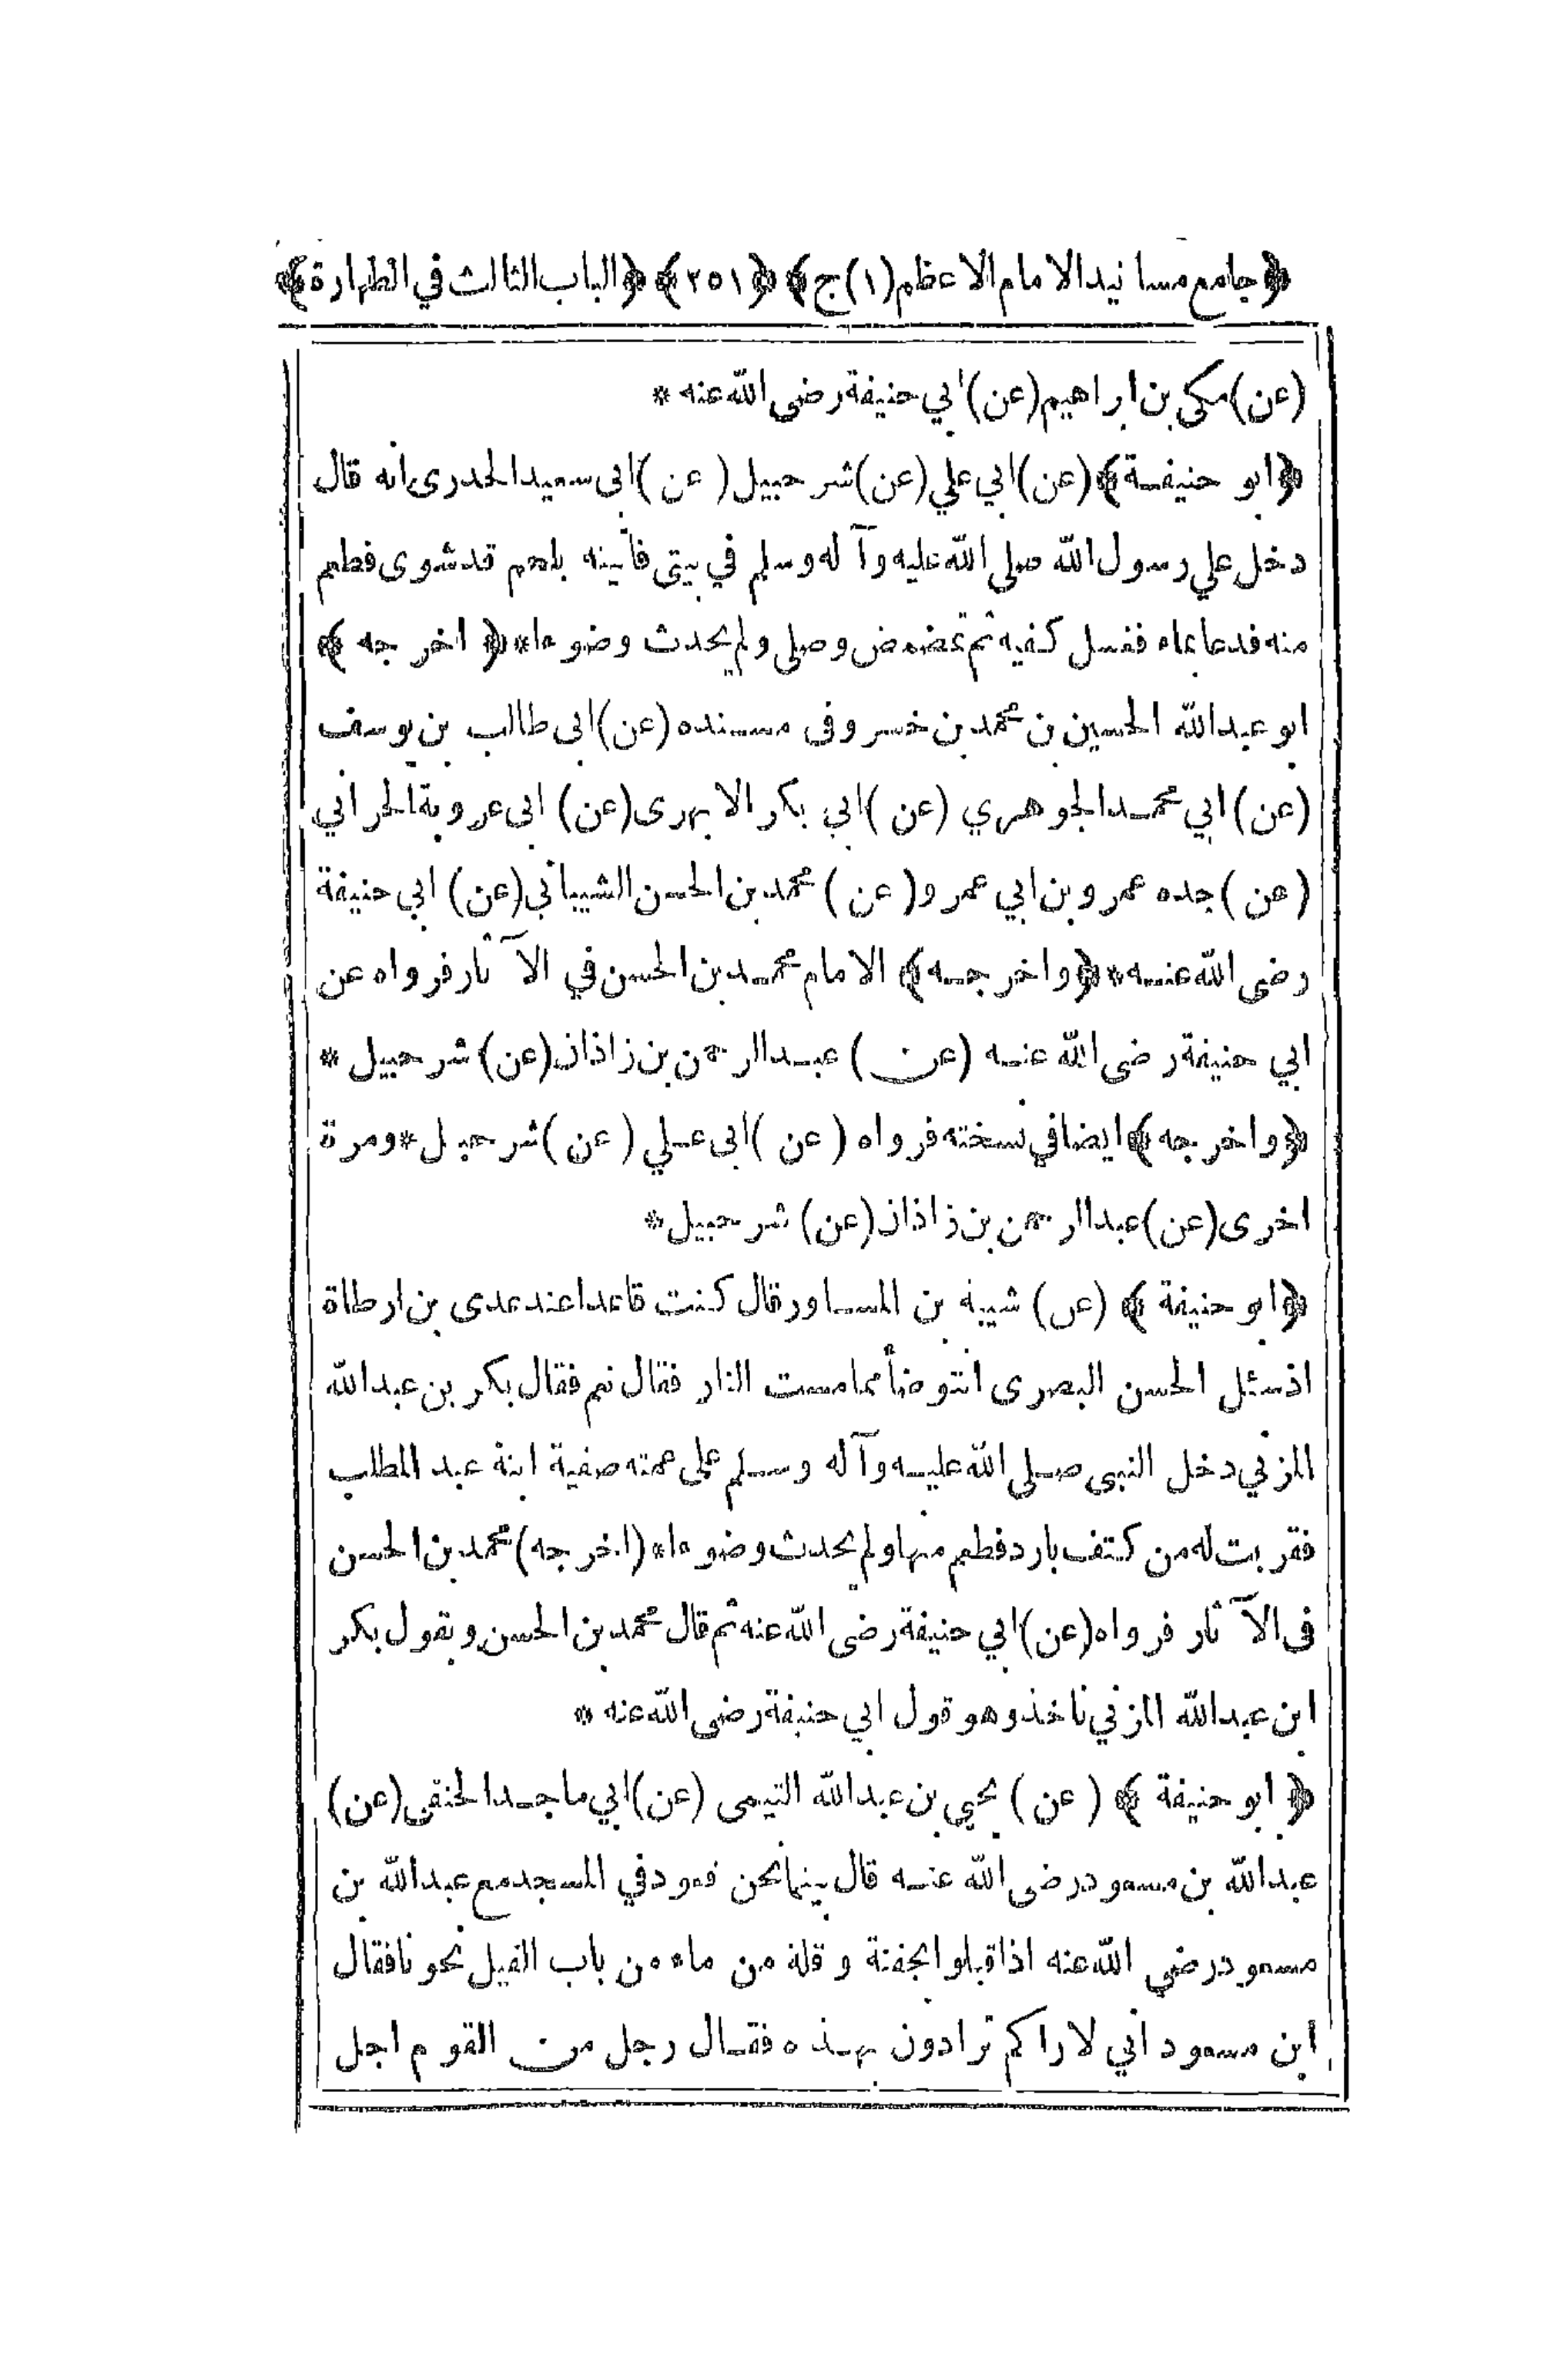 ﴿جامع مسانيد الامام الاعظم (١) ج﴾ ﴿٢٥١﴾ ﴿الباب الثالث في الطهارة﴾
(عن) مكى بن ابراهيم (عن) ابي حنيفة رضى الله عنه *
﴿ابو حنيفة﴾ (عن) ابي علي (عن) شرحبيل (عن) ابى سعيد الخدرى انه قال
دخل علي رسول الله صلى الله عليه وآله وسلم في بيتى فأتينه بلحم قد شوى فطعم
منه فدعا بماء فغسل كفيه ثم تمضمض وصلى ولم يحدث وضوءا * ﴿اخرجه﴾
ابو عبد الله الحسين بن محمد بن خسرو فى مسنده (عن) ابى طالب بن يوسف
(عن) ابي محمد الجوهري (عن) ابي بكر الابهرى (عن) ابى عروبة الحراني
(عن) جده عمرو بن ابي عمرو (عن) محمد بن الحسن الشيباني (عن) ابي حنيفة
رضى الله عنه * ﴿واخرجه﴾ الامام محمد بن الحسن في الآثار فرواه عن
ابي حنيفة رضى الله عنه (عن) عبد الرحمن بن زاذان (عن) شرحبيل *
﴿واخرجه﴾ ايضا في نسخته فرواه (عن) ابى علي (عن) شرحبيل * ومرة
اخرى (عن) عبد الرحمن بن زاذان (عن) شرحبيل *
﴿ابو حنيفة﴾ (عن) شيبة بن المساور قال كنت قاعدا عند عدى بن ارطاة
اذ سئل الحسن البصرى انتوضأ مما مست النار فقال نعم فقال بكر بن عبد الله
المزني دخل النبى صلى الله عليه وآله وسلم على عمته صفية ابنة عبد المطلب
فقربت له من كتف بارد فطعم منها ولم يحدث وضوءا * (اخرجه) محمد بن الحسن
فى الآثار فرواه (عن) ابي حنيفة رضى الله عنه ثم قال محمد بن الحسن وبقول بكر
ابن عبد الله المزني ناخذ وهو قول ابي حنيفة رضى الله عنه *
﴿ابو حنيفة﴾ (عن) يحيى بن عبد الله التيمى (عن) ابي ماجد الحنفى (عن)
عبد الله بن مسعود رضى الله عنه قال بينما نحن قعود في المسجد مع عبد الله بن
مسعود رضى الله عنه اذ اقبلوا بجفنة وقلة من ماء من باب الفيل نحونا فقال
ابن مسعود اني لاراكم ترادون بهذه فقال رجل من القوم اجل